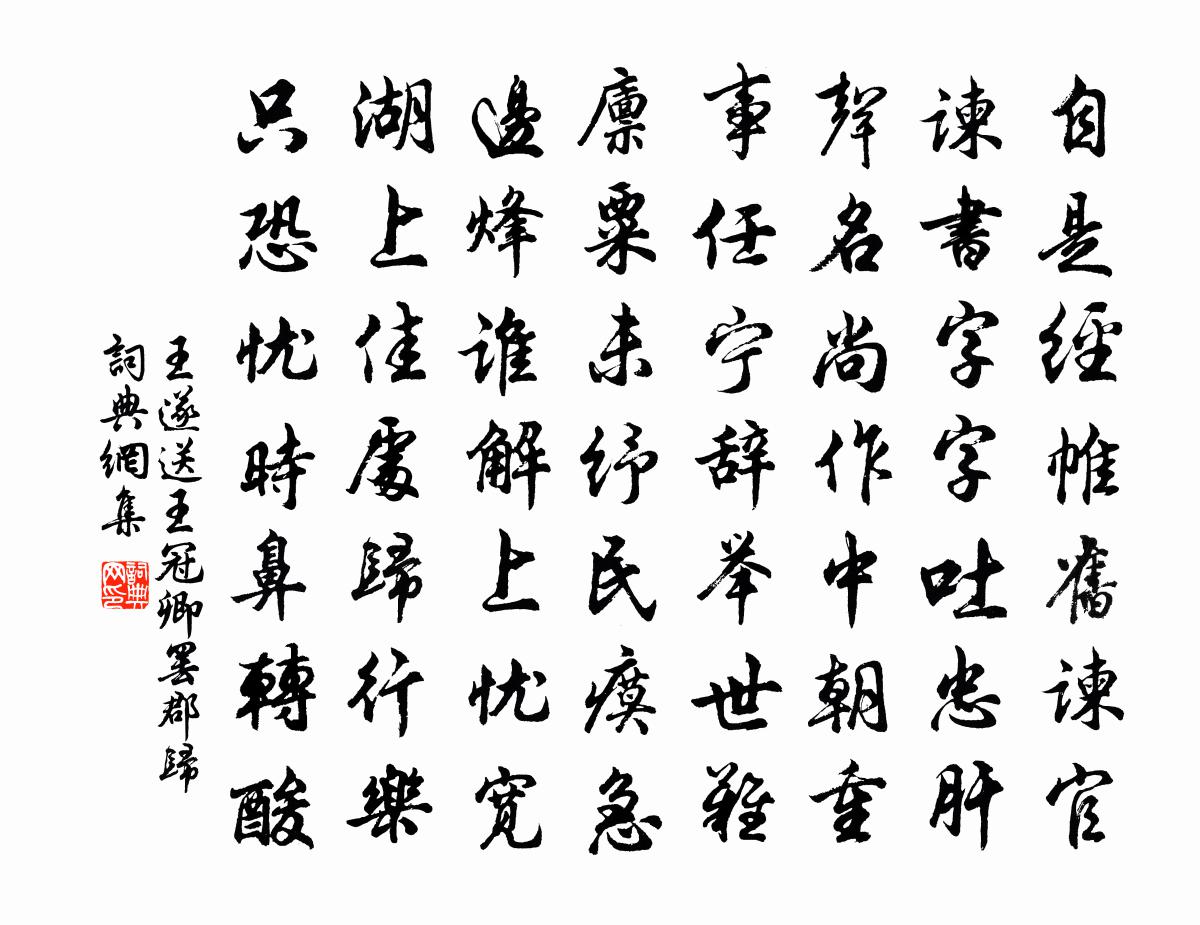 自是經帷舊諫官
諫書字字吐忠肝
聲名尚作中朝重
事任宁辞举世難
廪粟未紓民瘼急
邊烽誰解上忧宽
湖上佳處歸行樂
只恐忧時鼻轉酸
王遂送王冠卿罢郡歸
詞典網集
詞典网印